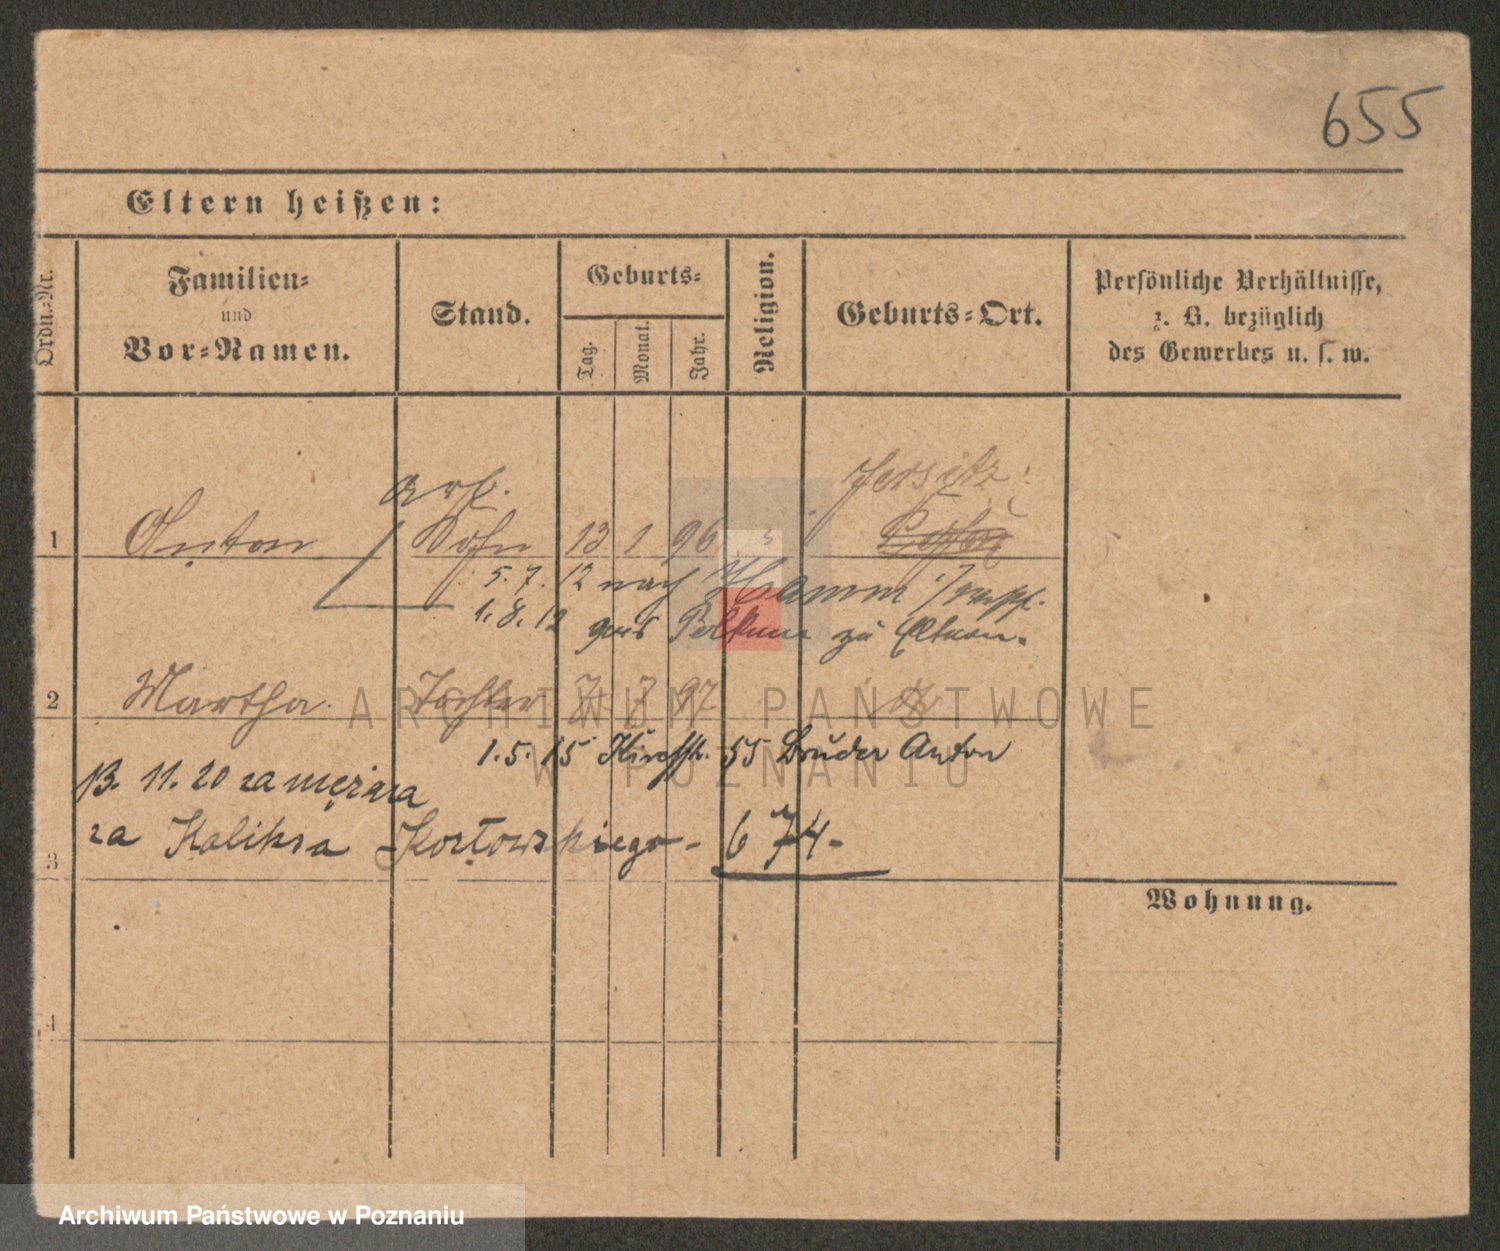 655
Eltern heißen:
Ordn.-Nr.
Familien-
und
Vor-Namen.
Stand.
Geburts-
Tag.
Monat.
Jahr.
Religion.
Geburts-Ort.
Persönliche Verhältnisse,
z. B. bezüglich
des Gewerbes u. s. w.
Arb. Jersitz
1 Anton Sohn 13 1 96 Posen
5. 7. 12 nach Hamm
1. 8. 12 aus Pelkum zu Eltern.
2 Martha Tochter 7 97
1. 5. 15 55 Bruder Anton
13. 11. 20 zamężna
3 za Kaliksa Kozłowskiego - 674-
Wohnung.
4
ARCHIWUM PAŃSTWOWE
W POZNANIU
Archiwum Państwowe w Poznaniu